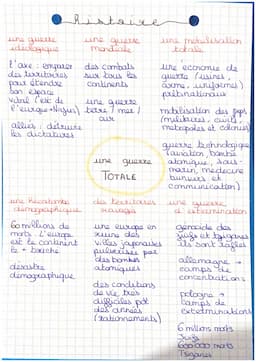 histoire
une guerre
idéologique
l'axe : emparer
des territoires
pour étendre
son espace
vital (est de
l'europe → Nazis)
alliés : détruire
les dictatures
une guerre
mondiale
des combats
sur tous les
continents
une guerre
terre / mer /
airs
une mobilisation
totale
une économie de
guerre (usines,
arme, uniformes)
mobilisation des pop
(militaires, civils,
métropoles et colonies)
guerre technologique
(aviation, bombe
atomique, sous-
marin, médecine
bunkers et
communication)
une guerre
TOTALE
une hécatombe
démographique
60 millions de
morts. l'europe
est le continent
le + touché
désastre
démographique
des territoires
ravagés
une europe en
ruine des
villes japonaises
pulvérisées par
des bombes
atomiques
des conditions
de vie très
difficiles pdt
des années
(rationnements)
une guerre
d'extermination
génocide des
juifs et tziganes
ils sont raflés
allemagne →
camps de
concentrations
pologne →
camps de
exterminations
6 millions morts
Juifs
Tziganes